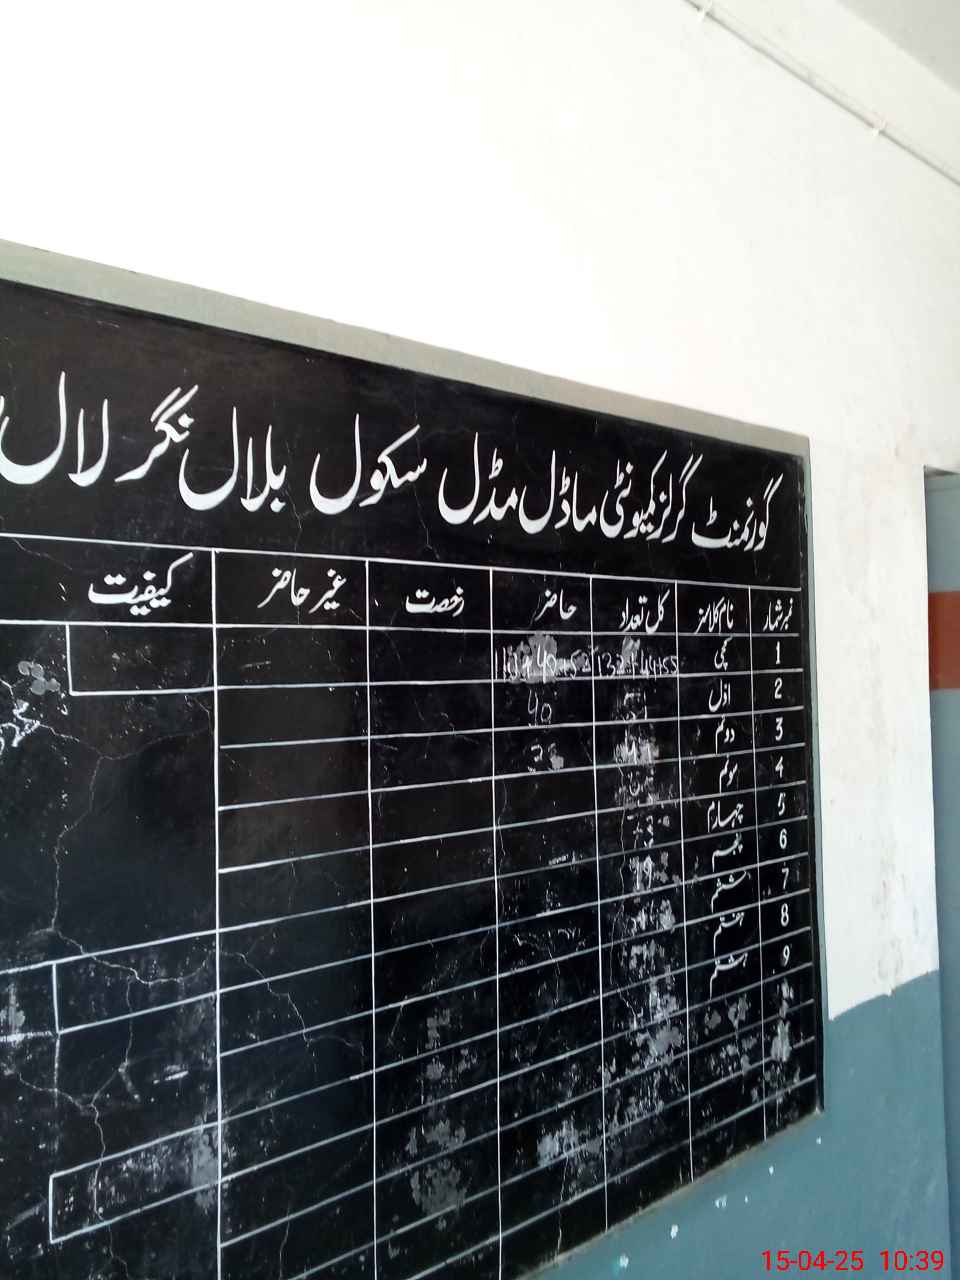 گورنمنٹ گرلز کمیونٹی ماڈل مڈل سکول بلال نگر لال
نمبر شمار نام کلاسز کل تعداد حاضر رخصت غیر حاضر کیفیت
1 کچی
2 اوّل
3 دوئم
4 سوئم
5 چہارم
6 پنجم
7 ششم
8 ہفتم
9 ہشتم
15-04-25 10:39